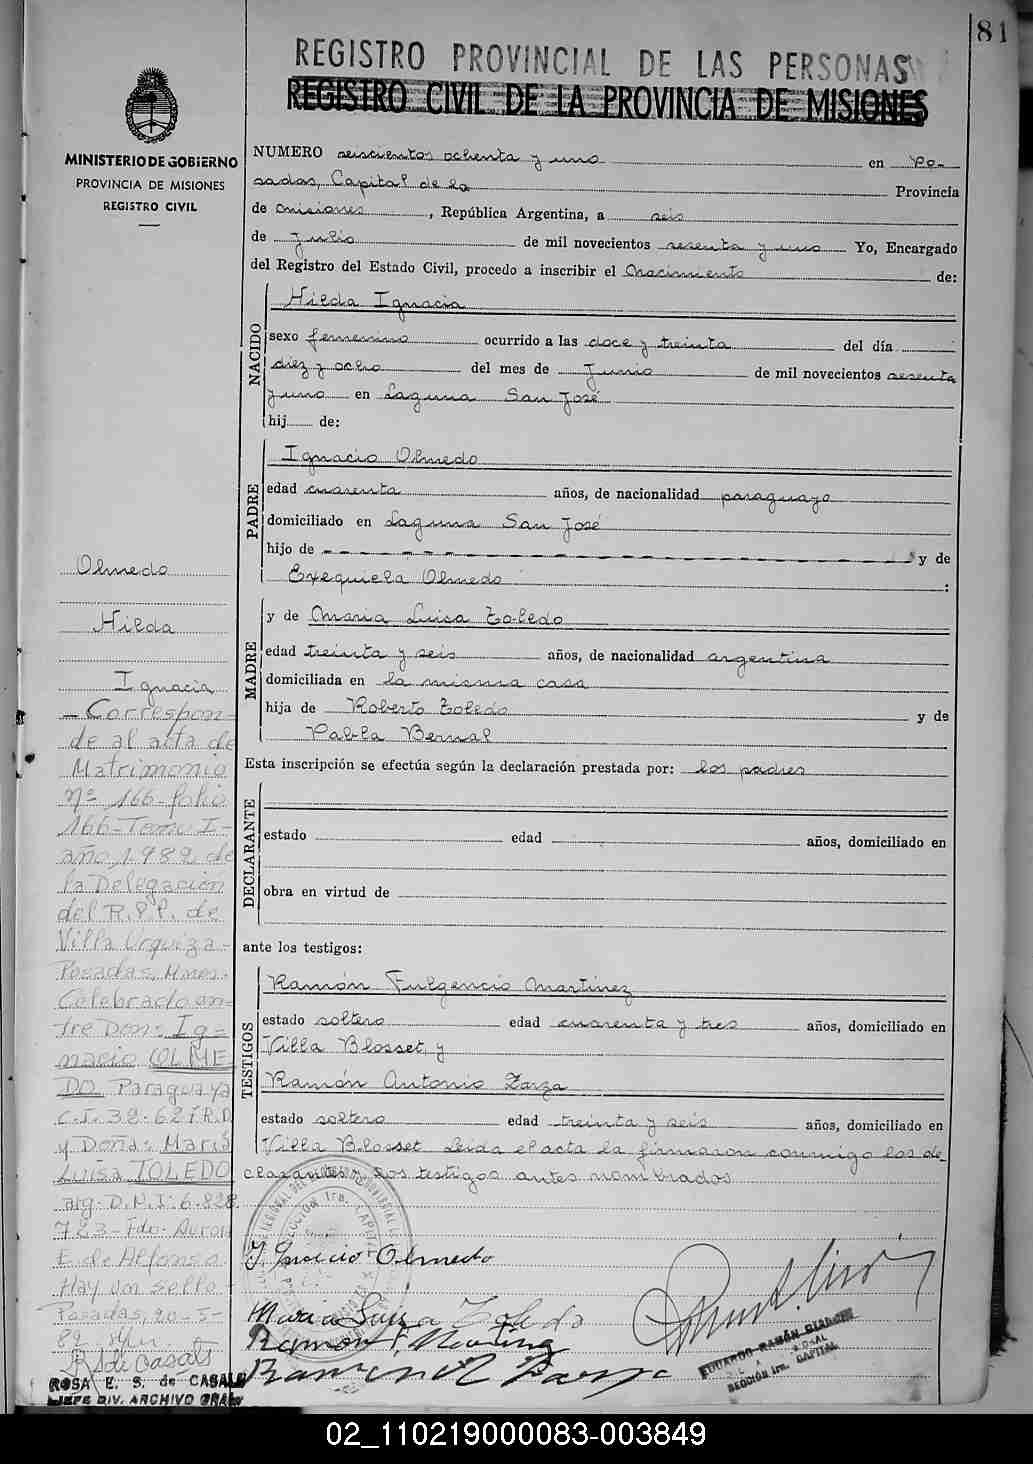 81
REGISTRO PROVINCIAL DE LAS PERSONAS
REGISTRO CIVIL DE LA PROVINCIA DE MISIONES
MINISTERIO DE GOBIERNO
PROVINCIA DE MISIONES
REGISTRO CIVIL
NUMERO seiscientos ochenta y uno en Po-
sadas, Capital de la Provincia
de Misiones, República Argentina, a seis
de Julio de mil novecientos sesenta y uno Yo, Encargado
del Registro del Estado Civil, procedo a inscribir el Nacimiento de:
NACIDO
Hilda Ignacia
sexo femenino ocurrido a las doce y treinta del día
diez y ocho del mes de Junio de mil novecientos sesenta
y uno en Laguna San José
hij de:
PADRE
Ignacio Olmedo
edad cuarenta años, de nacionalidad paraguayo
domiciliado en Laguna San José
hijo de y de
Exequiela Olmedo
MADRE
y de Maria Luisa Toledo
edad treinta y seis años, de nacionalidad argentina
domiciliada en la misma casa
hija de Roberto Toledo y de
Pabla Bernal
Esta inscripción se efectúa según la declaración prestada por: los padres
DECLARANTE
estado edad años, domiciliado en
obra en virtud de
ante los testigos:
TESTIGOS
Ramón Fulgencio Martinez
estado soltero edad cuarenta y tres años, domiciliado en
Villa Blosset y
Ramón Antonio Zarza
estado soltero edad treinta y seis años, domiciliado en
Villa Blosset Leida el acta la firmaron conmigo los de-
clarantes y los testigos antes nombrados
I. Ignacio Olmedo
Maria Luisa Toledo
Ramon F. Martinez
Ramon A Zarza
EDUARDO RAMÓN
SECCIÓN 1ra. CAPITAL
Olmedo
Hilda
Ignacia
- Correspon-
de al acta de
Matrimonio
Nº 166-folio
166-Tomo I-
año 1.982 de
la Delegación
del R.P.P. de
Villa Urquiza-
Posadas, Mnes.
Celebrado an-
tre Don: Ig-
nacio OLME
DO Paraguaya
C.I. 32.621 R.P.
y Doña: Maria
Luisa TOLEDO
arg. D.N.I: 6.828.
723-Fdo. Aurora
E de Alfonso
Hay un sello-
Posadas, 20-5-
82
R S de Casals
ROSA E. S. de CASALS
JEFE DIV. ARCHIVO GRAL
02_110219000083-003849